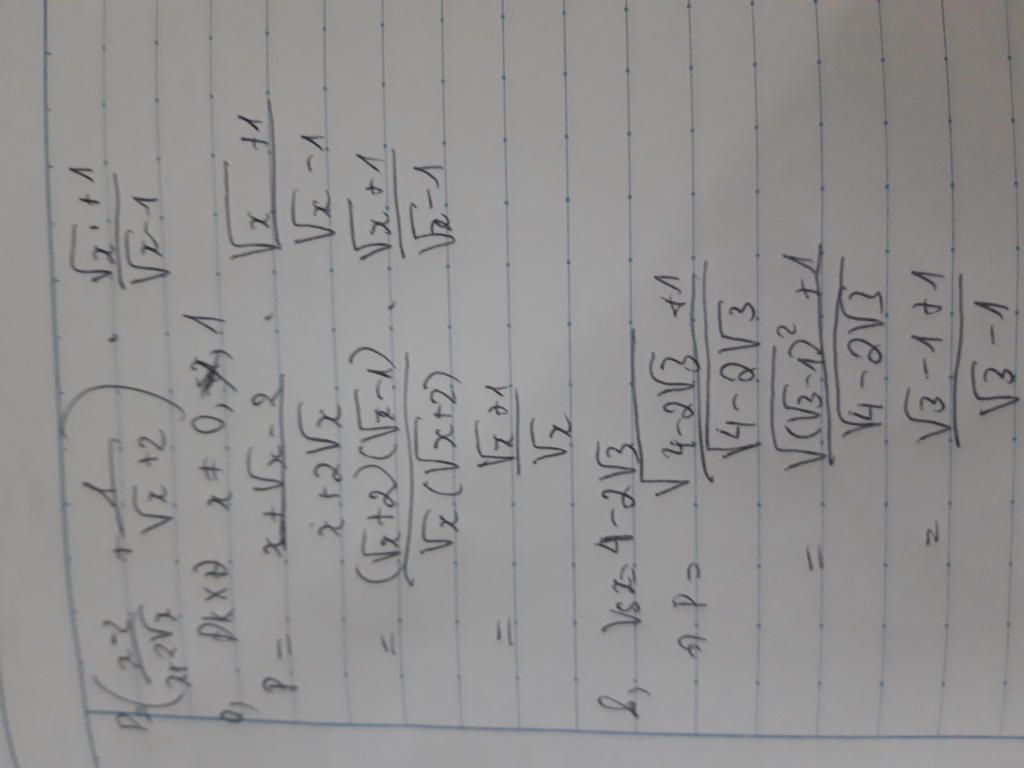 P = (x-2/x+2√x + 1/√x+2) . √x+1/√x-1
a, Đk xđ x ≠ 0, 1
P = x+√x-2/x+2√x . √x+1/√x-1
= (√x+2)(√x-1)/√x(√x+2) . √x+1/√x-1
= √x+1/√x
b, Với x = 4-2√3
=> P = √4-2√3 +1/√4-2√3
= √(√3-1)² +1/√4-2√3
= √3-1+1/√3-1